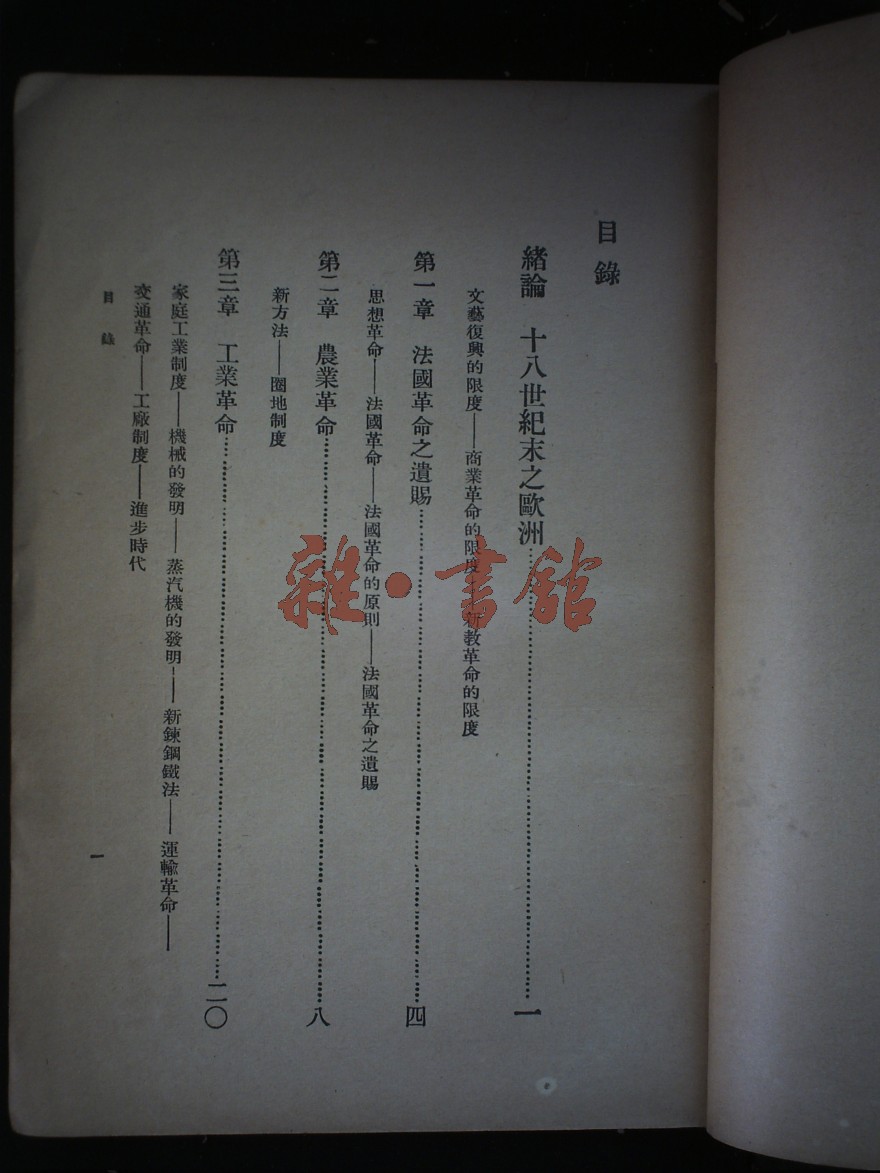 目錄
緒論 十八世紀末之歐洲……一
文藝復興的限度——商業革命的限度——新教革命的限度
第一章 法國革命之遺賜……四
思想革命——法國革命——法國革命的原則——法國革命之遺賜
第二章 農業革命……八
新方法——圈地制度
第三章 工業革命……二〇
家庭工業制度——機械的發明——蒸汽機的發明——新鍊鋼鐵法——運輸革命——
交通革命——工廠制度——進步時代
目錄
一
雜·書館